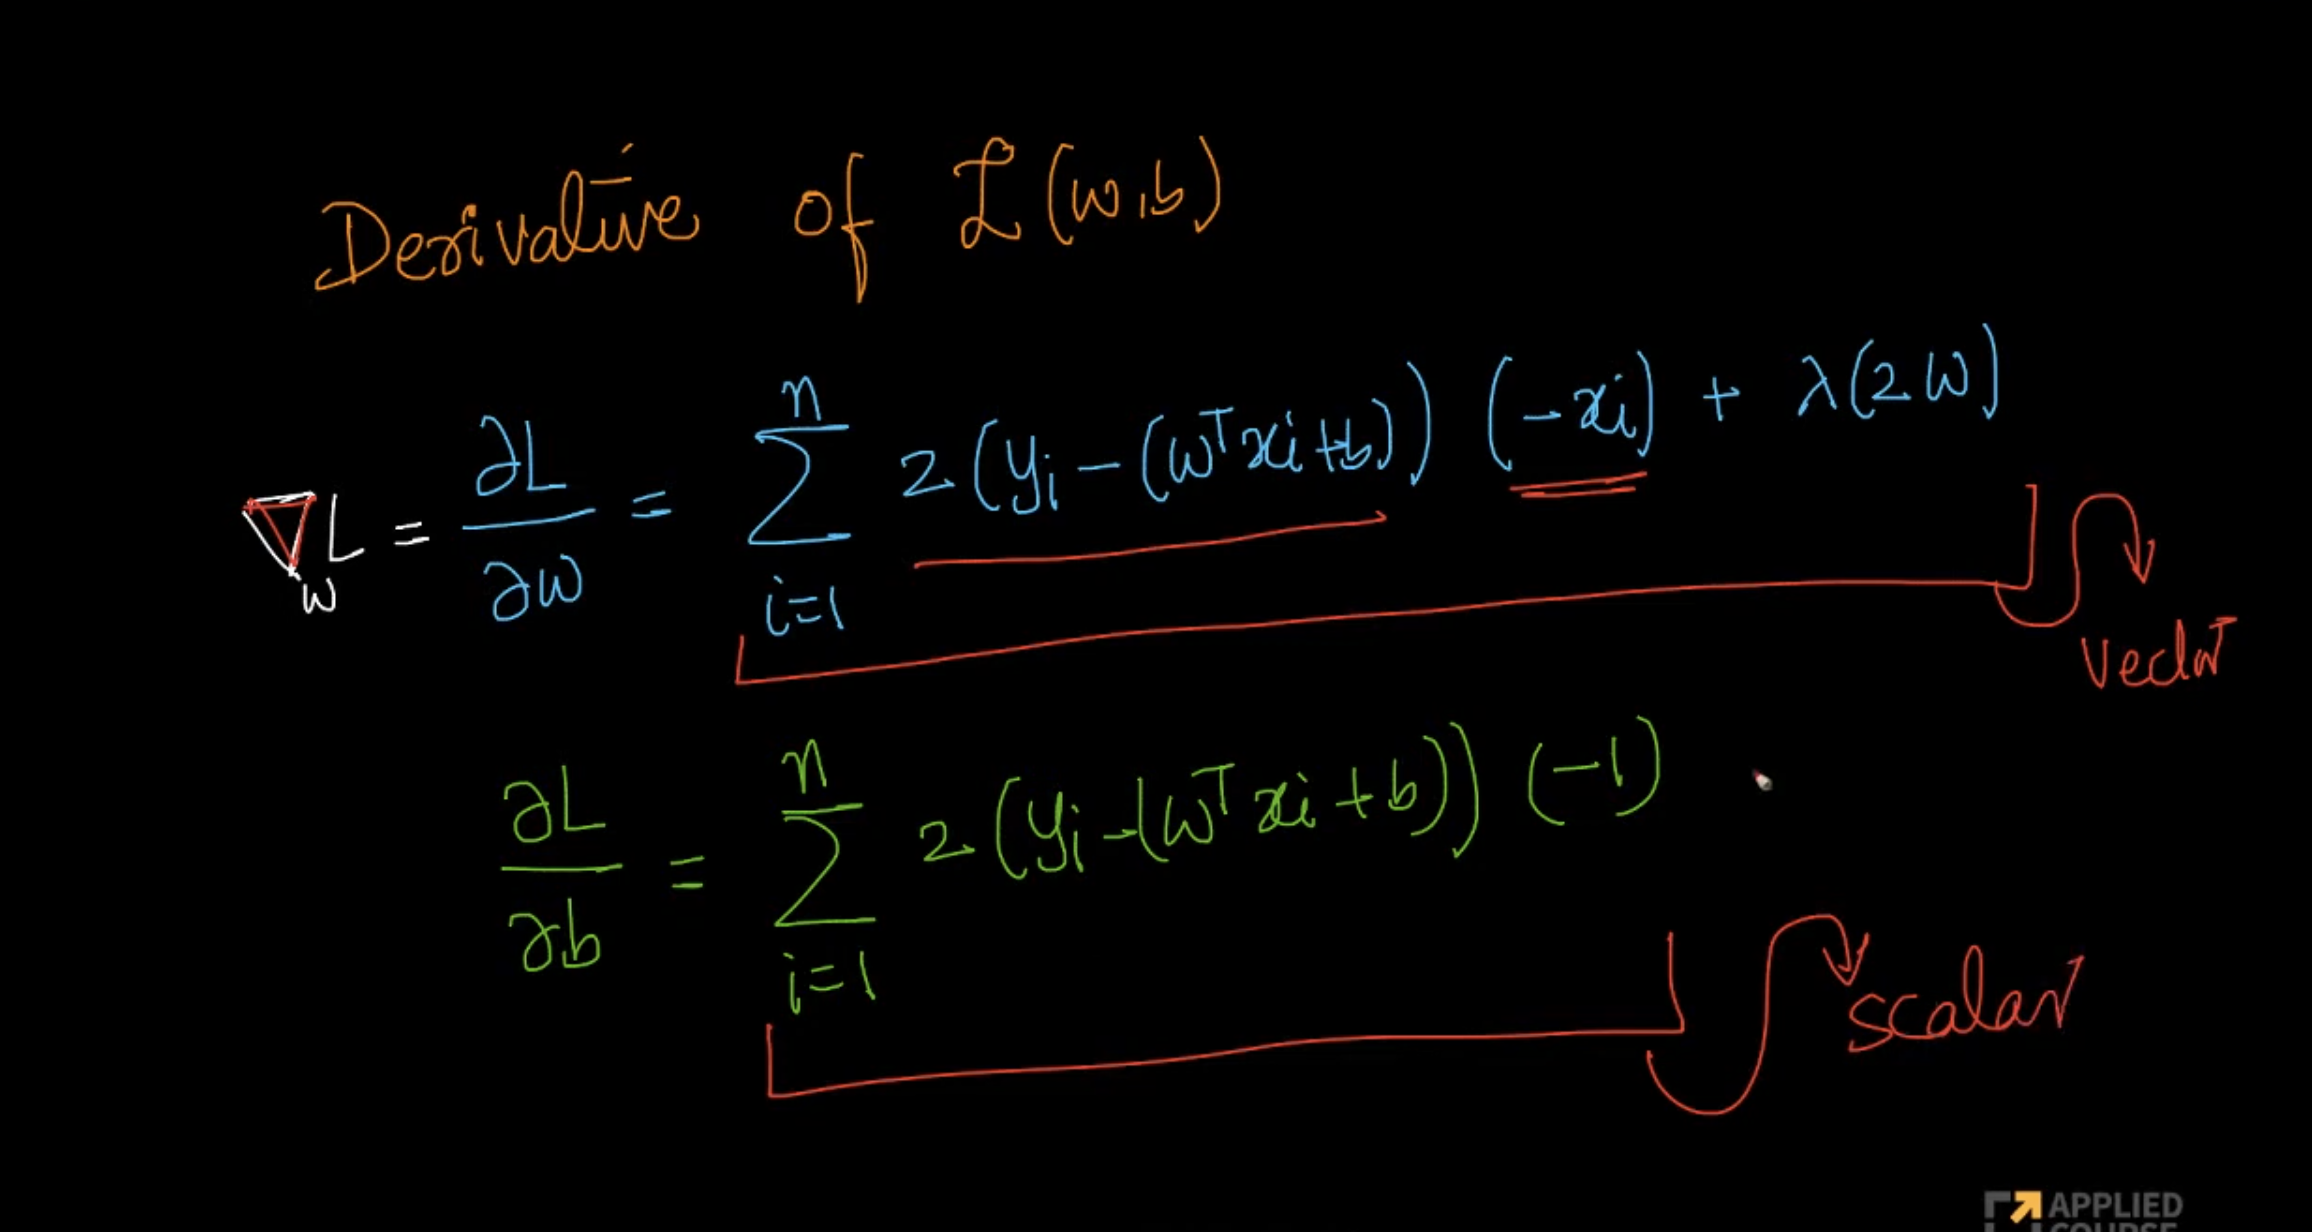 Derivative of ℒ(w,b)
∇_w L = ∂L/∂w = Σ_{i=1}^{n} 2(y_i - (w^T x_i + b)) (-x_i) + λ(2w)
vector
∂L/∂b = Σ_{i=1}^{n} 2(y_i - (w^T x_i + b)) (-1)
scalar
APPLIED
COURSE